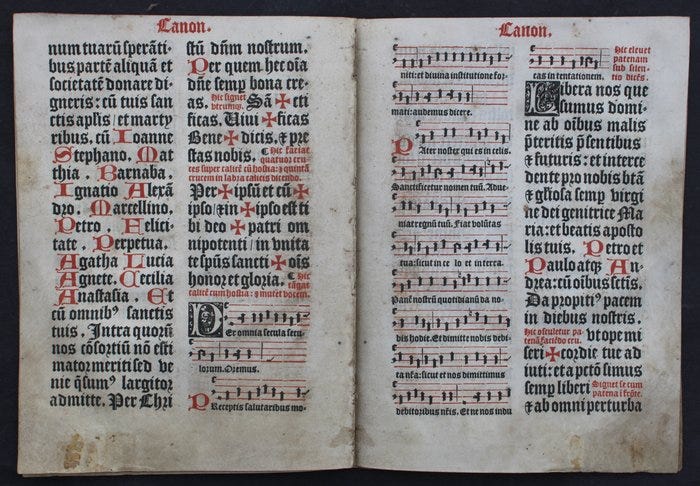 Canon.
num tuarū sperāti-
bus partē aliquā et
societatē donare di-
gneris: cū tuis san
ctis apl̄is et marty
ribus. cū Ioanne
Stephano. Mat
thia. Barnaba.
Ignatio Alexā
dro. Marcellino.
Petro. Felici-
tate. Perpetua.
Agatha Lucia
Agnete. Cecilia
Anastasia. Et
cū omnibꝰ sanctis
tuis. Intra quorū
nos cōsortiū nō esti
mator meriti sed ve
nie q̄sumꝰ largitor
admitte. Per Chri
stū dn̄m nostrum.
Per quem hec oīa
dn̄e semꝑ bona cre-
as. Hic signet Sā✠cti
vtrumqꝫ.
ficas. Uiui✠ficas
Bene✠dicis. ⁊ pre
stas nobis. Hic faciat
quatuor cru
ces super calicē cū hostia: ⁊ quintā
crucem in labia calicis dicendo.
Per✠ipsū et cū✠
ipso/⁊in✠ipso est ti
bi deo✠patri om
nipotenti/in vnita
te spūs sancti✠oīs
honor et gloria. Hic
tāgat
calicē cum hostia: ⁊ mutet vocem.
Per omnia secula secu-
lorum. Oremus.
Preceptis salutaribus mo-
Canon.
niti: et diuina institutione for-
mati: audemus dicere.
Pater noster qui es in celis.
Sanctificetur nomen tuū. Adue-
niat regnū tuū. Fiat volūtas
tua: sicut in ce lo et in terra.
Panē nostrū quotidianū da no-
bis hodie. Et dimitte nobis debi-
ta nr̄a: sicut et nos dimittimus
debitoribus nr̄is. Et ne nos indu
cas in tentationem.
Hic eleuet
patenam
sub silen-
tio dicēs.
Libera nos que
sumus domi-
ne ab oībus malis
p̄teritis p̄sentibus
⁊ futuris: et interce
dente pro nobis btā
⁊ gl̄iosa semꝑ virgi
ne dei genitrice Ma
ria: et beatis aposto
lis tuis. Petro et
Paulo atqꝫ An-
drea: cū oībus sctis.
Da propitiꝰ pacem
in diebus nostris.
Hic osculetur pa-
tenā faciēdo cru. vt ope mi
seri✠cordie tue ad
iuti: et a pctō simus
semꝑ liberi Signet se cum
patena ī frōte.
⁊ ab omni perturba